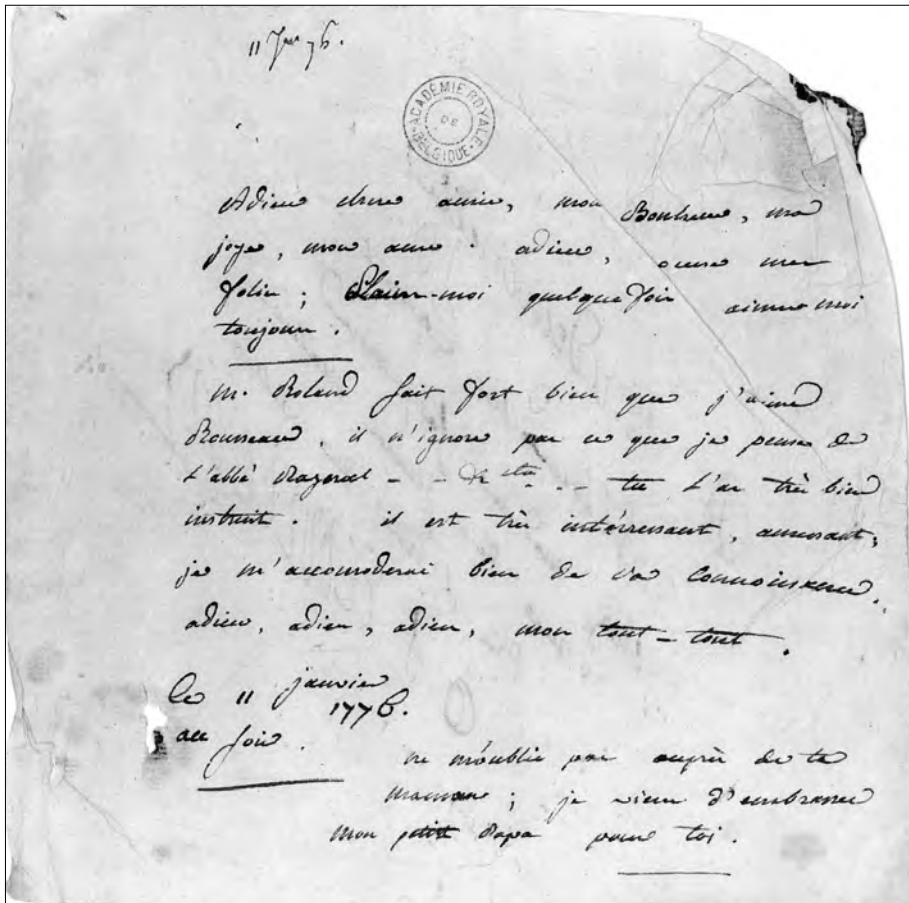 11 Jer 76.
ACADÉMIE ROYALE
DE
BELGIQUE
Adieu chere amie, mon Bonheur, ma
joye, mon ame. adieu, mes
folies; Plains-moi quelquefois aimes moi
toujours.
M. Roland sait fort bien que j'aime
Rousseau, il n'ignore pas ce que je pense de
L'abbé Raynal - - - - tu L'as très bien
instruit. il est très intérressant, amusant;
je m'accomoderai bien de sa connoissance.
adieu, adieu, adieu, mon tout-tout.
Le 11 janvier
1776.
au soir.
ne m'oublie pas auprès de ta
maman; je viens d'embrasser
mon petit Papa pour toi.